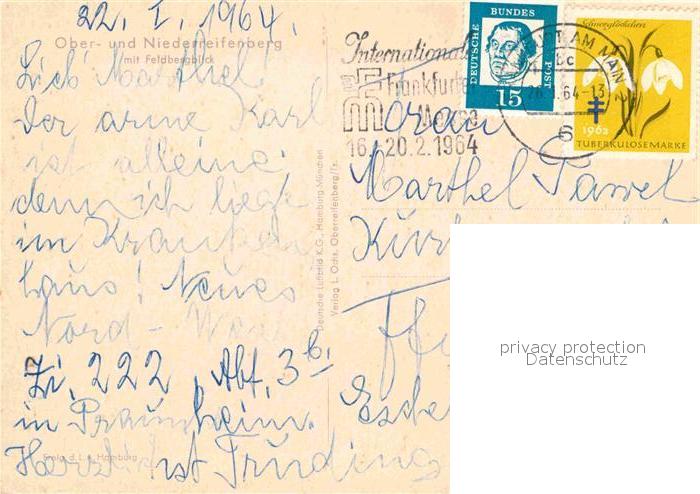 22. I. 1964.
Ober- und Niederreifenberg
mit Feldbergblick
Lieb' Marthel!
Der arme Karl
ist alleine,
denn ich liege
im Kranken
haus! Neues
Nord-
Zi, 222, Abt, 3b.
in Praunheim.
Herzlichst
Deutsche Luftbild K.G., Hamburg-München
Verlag L. Ochs, Oberreifenberg/Ts.
Freig. d. L.A. Hamburg
Internationale
Frankfurter
Messe
16.-20.2.1964
DEUTSCHE BUNDES POST
15
AM MAIN 2
64-13
6
Schneeglöckchen
1962
TUBERKULOSEMARKE
Frau
Marthel
privacy protection
Datenschutz